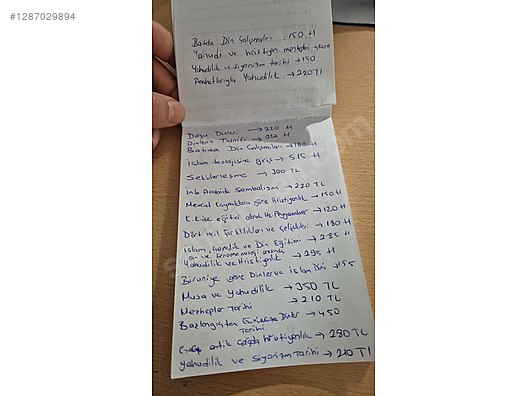 #1287029894
Batıda Din Çalışmaları → 150 tl
Yahudi ve hristiyan
Yahudilik ve siyonizm tarihi → 150
Yahudilik → 220 Tl
Doğu Dinleri → 220 tl
Dinlerin Tasnifi → 220 tl
Batıda Din Çalışmaları → 180 tl
İslam teolojisine giriş → 515 tl
Sekülerleşme → 300 TL
İnb Arabide Sembolizm → 220 TL
Mevcut Kaynaklara Göre Hristiyanlık → 150 tl
eğitici olarak Hz Peygamber → 120 tl
Dört incil farklılıkları ve Çelişkileri → 180 tl
İslam, Gençlik ve Din Eğitimi → 285 tl
din ve fenomenoloji
Yahudilik ve Hristiyanlık → 295 tl
Biruniye göre Dinler ve İslam Dini → 155
Musa ve Yahudilik → 350 TL
Mezhepler Tarihi → 210 TL
Başlangıçtan Günümüze Dinler Tarihi → 450
Hristiyanlık → 280 TL
Yahudilik ve Siyonizm Tarihi → 210 Tl